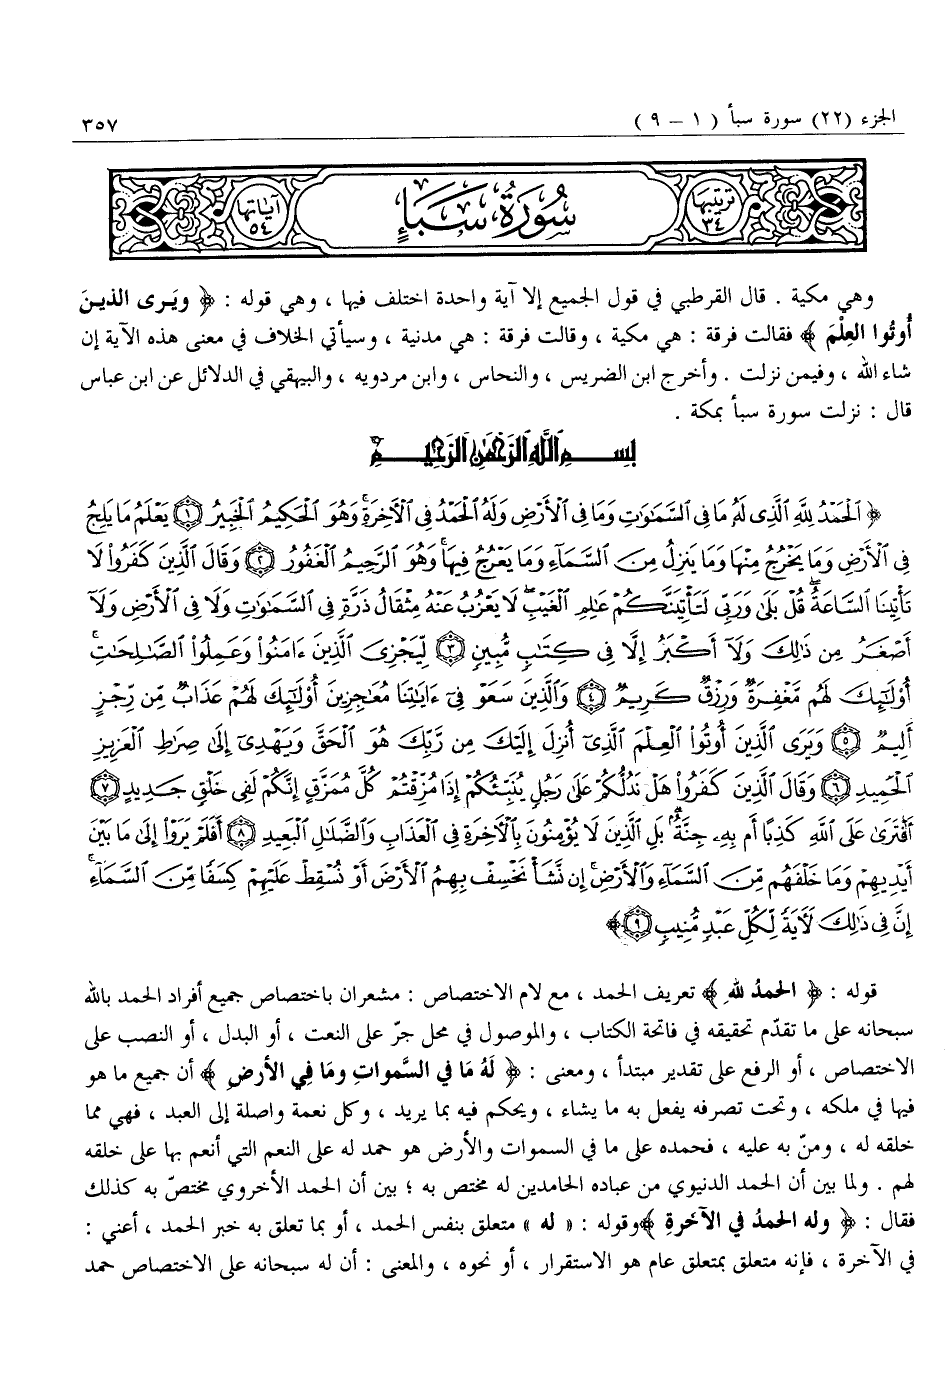 الجزء (٢٢) سورة سبأ ( ١ – ٩ ) ٣٥٧
ترتيبها ٣٤ سُورَةُ سَبَإٍ آياتها ٥٤
وهي مكية . قال القرطبي في قول الجميع إلا آية واحدة اختلف فيها ، وهي قوله : ﴿ ويَرى الذينَ
أُوتُوا العِلْمَ ﴾ فقالت فرقة : هي مكية ، وقالت فرقة : هي مدنية ، وسيأتي الخلاف في معنى هذه الآية إن
شاء الله ، وفيمن نزلت . وأخرج ابن الضريس ، والنحاس ، وابن مردويه ، والبيهقي في الدلائل عن ابن عباس
قال : نزلت سورة سبأ بمكة .
بِسْمِ اللَّهِ الرَّحْمَٰنِ الرَّحِيمِ
﴿ ٱلْحَمْدُ لِلَّهِ ٱلَّذِى لَهُۥ مَا فِى ٱلسَّمَٰوَٰتِ وَمَا فِى ٱلْأَرْضِ وَلَهُ ٱلْحَمْدُ فِى ٱلْءَاخِرَةِ ۚ وَهُوَ ٱلْحَكِيمُ ٱلْخَبِيرُ ١ يَعْلَمُ مَا يَلِجُ
فِى ٱلْأَرْضِ وَمَا يَخْرُجُ مِنْهَا وَمَا يَنزِلُ مِنَ ٱلسَّمَآءِ وَمَا يَعْرُجُ فِيهَا ۚ وَهُوَ ٱلرَّحِيمُ ٱلْغَفُورُ ٢ وَقَالَ ٱلَّذِينَ كَفَرُوا۟ لَا
تَأْتِينَا ٱلسَّاعَةُ ۖ قُلْ بَلَىٰ وَرَبِّى لَتَأْتِيَنَّكُمْ عَٰلِمِ ٱلْغَيْبِ ۖ لَا يَعْزُبُ عَنْهُ مِثْقَالُ ذَرَّةٍ فِى ٱلسَّمَٰوَٰتِ وَلَا فِى ٱلْأَرْضِ وَلَآ
أَصْغَرُ مِن ذَٰلِكَ وَلَآ أَكْبَرُ إِلَّا فِى كِتَٰبٍ مُّبِينٍ ٣ لِّيَجْزِىَ ٱلَّذِينَ ءَامَنُوا۟ وَعَمِلُوا۟ ٱلصَّٰلِحَٰتِ ۚ
أُو۟لَٰٓئِكَ لَهُم مَّغْفِرَةٌ وَرِزْقٌ كَرِيمٌ ٤ وَٱلَّذِينَ سَعَوْ فِىٓ ءَايَٰتِنَا مُعَٰجِزِينَ أُو۟لَٰٓئِكَ لَهُمْ عَذَابٌ مِّن رِّجْزٍ
أَلِيمٌ ٥ وَيَرَى ٱلَّذِينَ أُوتُوا۟ ٱلْعِلْمَ ٱلَّذِىٓ أُنزِلَ إِلَيْكَ مِن رَّبِّكَ هُوَ ٱلْحَقَّ وَيَهْدِىٓ إِلَىٰ صِرَٰطِ ٱلْعَزِيزِ
ٱلْحَمِيدِ ٦ وَقَالَ ٱلَّذِينَ كَفَرُوا۟ هَلْ نَدُلُّكُمْ عَلَىٰ رَجُلٍ يُنَبِّئُكُمْ إِذَا مُزِّقْتُمْ كُلَّ مُمَزَّقٍ إِنَّكُمْ لَفِى خَلْقٍ جَدِيدٍ ٧
أَفْتَرَىٰ عَلَى ٱللَّهِ كَذِبًا أَم بِهِۦ جِنَّةٌۢ ۗ بَلِ ٱلَّذِينَ لَا يُؤْمِنُونَ بِٱلْءَاخِرَةِ فِى ٱلْعَذَابِ وَٱلضَّلَٰلِ ٱلْبَعِيدِ ٨ أَفَلَمْ يَرَوْا۟ إِلَىٰ مَا بَيْنَ
أَيْدِيهِمْ وَمَا خَلْفَهُم مِّنَ ٱلسَّمَآءِ وَٱلْأَرْضِ ۚ إِن نَّشَأْ نَخْسِفْ بِهِمُ ٱلْأَرْضَ أَوْ نُسْقِطْ عَلَيْهِمْ كِسَفًا مِّنَ ٱلسَّمَآءِ ۚ
إِنَّ فِى ذَٰلِكَ لَءَايَةً لِّكُلِّ عَبْدٍ مُّنِيبٍ ٩ ﴾
قوله : ﴿ الحمدُ للهِ ﴾ تعريف الحمد ، مع لام الاختصاص : مشعران باختصاص جميع أفراد الحمد بالله
سبحانه على ما تقدّم تحقيقه في فاتحة الكتاب ، والموصول في محل جرّ على النعت ، أو البدل ، أو النصب على
الاختصاص ، أو الرفع على تقدير مبتدأ ، ومعنى : ﴿ لَهُ مَا في السَّمواتِ ومَا فِي الأرضِ ﴾ أن جميع ما هو
فيها في ملكه ، وتحت تصرفه يفعل به ما يشاء ، ويحكم فيه بما يريد ، وكل نعمة واصلة إلى العبد ، فهي مما
خلقه له ، ومنّ به عليه ، فحمده على ما في السموات والأرض هو حمد له على النعم التي أنعم بها على خلقه
لهم . ولما بين أن الحمد الدنيوي من عباده الحامدين له مختص به ؛ بين أن الحمد الأخروي مختصّ به كذلك
فقال : ﴿ وله الحمدُ في الآخرةِ ﴾ وقوله : « له » متعلق بنفس الحمد ، أو بما تعلق به خبر الحمد ، أعني :
في الآخرة ، فإنه متعلق بمتعلق عام هو الاستقرار ، أو نحوه ، والمعنى : أن له سبحانه على الاختصاص حمد